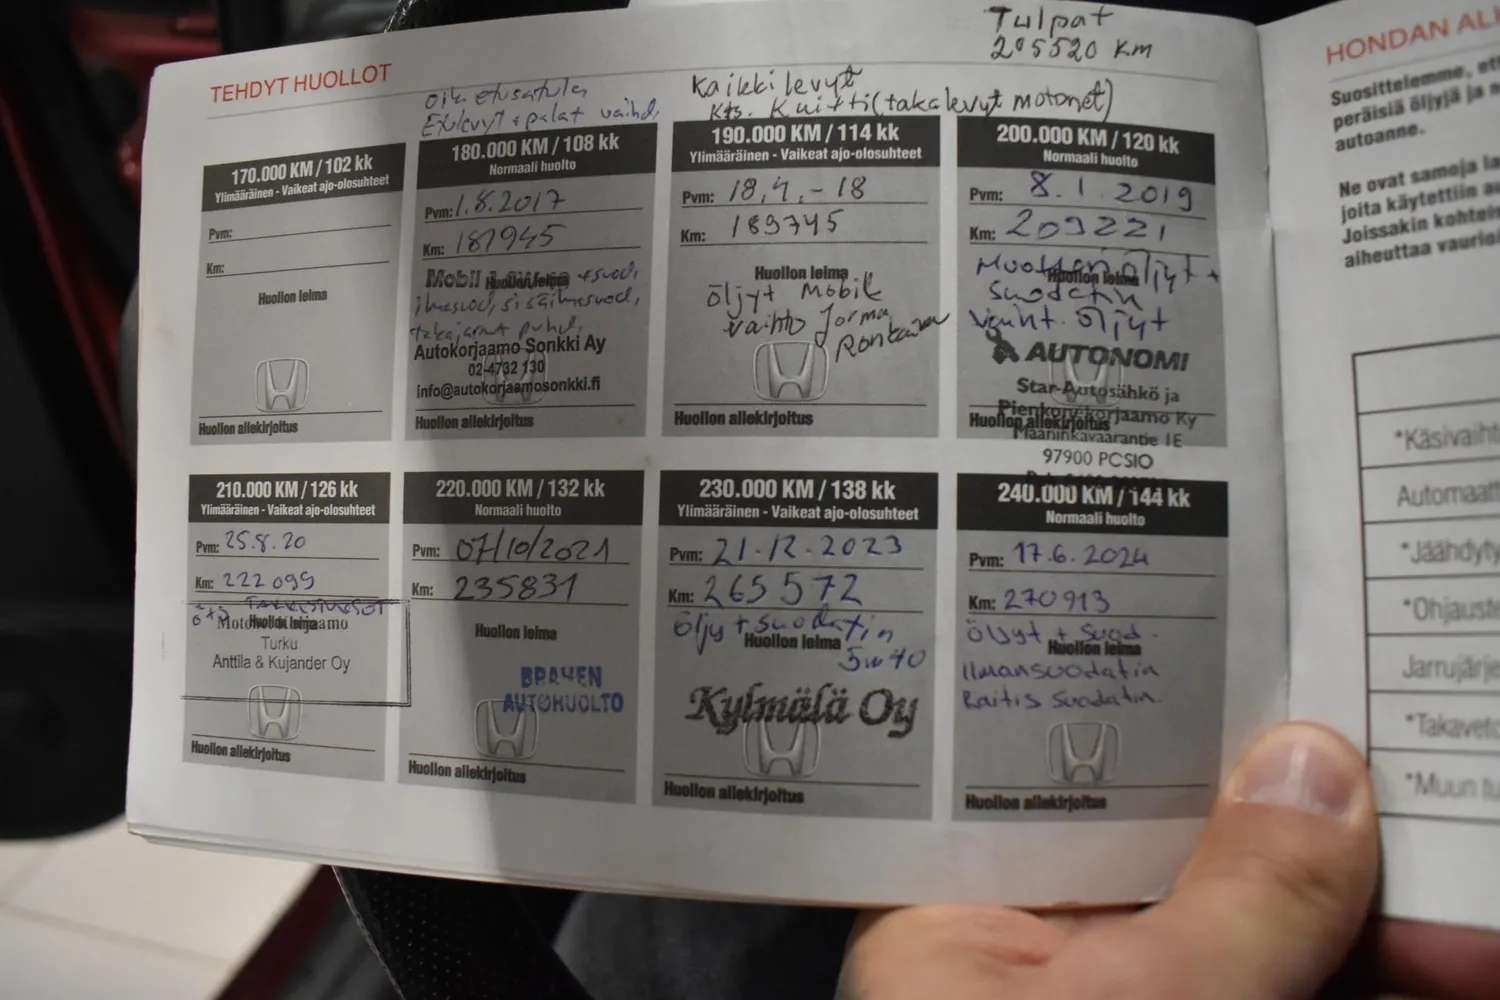 Tulpat
205520 Km
TEHDYT HUOLLOT
Oik etusatula
Etulevyt + palat vaihd.
Kaikki levyt
kts. Kuitti (takalevyt motonet)
170.000 KM / 102 kk
Ylimääräinen - Vaikeat ajo-olosuhteet
Pvm:
Km:
Huollon leima
Huollon allekirjoitus
180.000 KM / 108 kk
Normaali huolto
Pvm: 1.8.2017
Km: 181945
Mobil
Huollon leima
+ suod,
ilmasuod, sisäilmasuod,
takajarrut puhd,
Autokorjaamo Sonkki Ay
02-4732 130
info@autokorjaamosonkki.fi
Huollon allekirjoitus
190.000 KM / 114 kk
Ylimääräinen - Vaikeat ajo-olosuhteet
Pvm: 18.4.-18
Km: 189745
Huollon leima
öljyt Mobil
vaihto Jorma
Huollon allekirjoitus
200.000 KM / 120 kk
Normaali huolto
Pvm: 8.1.2019
Km: 209221
Huollon leima
Moottoriöljyt +
suodatin
öljyt
AUTONOMI
Star-Autosähkö ja
Pienkonekorjaamo Ky
Huollon allekirjoitus
Maaninkavaarantie 1E
97900 POSIO
210.000 KM / 126 kk
Ylimääräinen - Vaikeat ajo-olosuhteet
Pvm: 25.8.20
Km: 222 099
Huollon leima
Turku
Anttila & Kujander Oy
Huollon allekirjoitus
220.000 KM / 132 kk
Normaali huolto
Pvm: 07/10/2021
Km: 235831
Huollon leima
BRAHEN
AUTOHUOLTO
Huollon allekirjoitus
230.000 KM / 138 kk
Ylimääräinen - Vaikeat ajo-olosuhteet
Pvm: 21.12.2023
Km: 265572
öljy + suodatin
Huollon leima
5w40
Kylmälä Oy
Huollon allekirjoitus
240.000 KM / 144 kk
Normaali huolto
Pvm: 17.6.2024
Km: 270913
öljyt + suod.
Huollon leima
Ilmansuodatin
Raitis suodatin.
Huollon allekirjoitus
HONDAN AL
Suosittelemme, et
peräisiä öljyjä ja
autoanne.
Ne ovat samoja la
joita käytettiin
Joissakin kohtei
aiheuttaa vaurioi
*Käsivaiht
Automaatt
*Jäähdyty
*Ohjauste
Jarrujärje
*Takaveto
*Muun tu